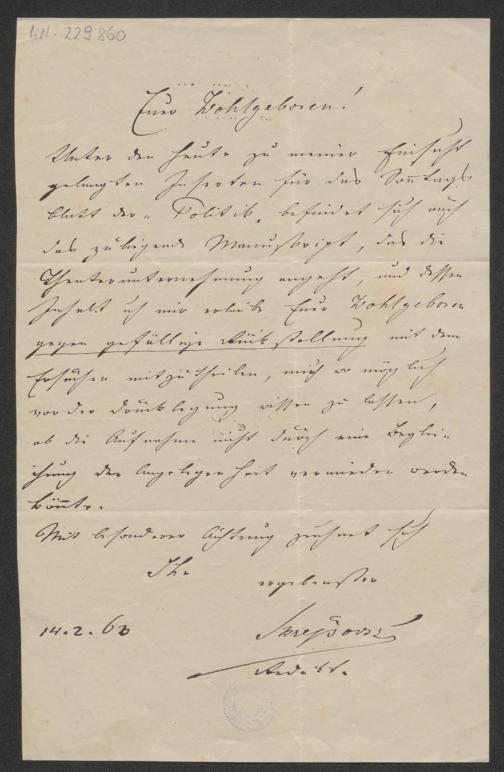 I.N. 229860
Euer Wohlgeboren!
Unter den heute zu meiner Einsicht
gelangten Inserten für das Sonntags-
blatt der „Politik“ befindet sich auch
das zuliegende Manuskript, das die
Theaterunternehmung angeht, und dessen
Inhalt ich mir erlaube Euer Wohlgeboren
gegen gefällige Rückstellung mit dem
Ersuchen mitzutheilen, mich wo möglich
vor der Drucklegung wissen zu lassen,
ob die Aufnahme nicht durch eine Beglei-
chung der Angelegenheit vermieden werden
könnte.
Mit besonderer Achtung zeichnet sich
Ihr
ergebenster
14.2.63
Redakt.